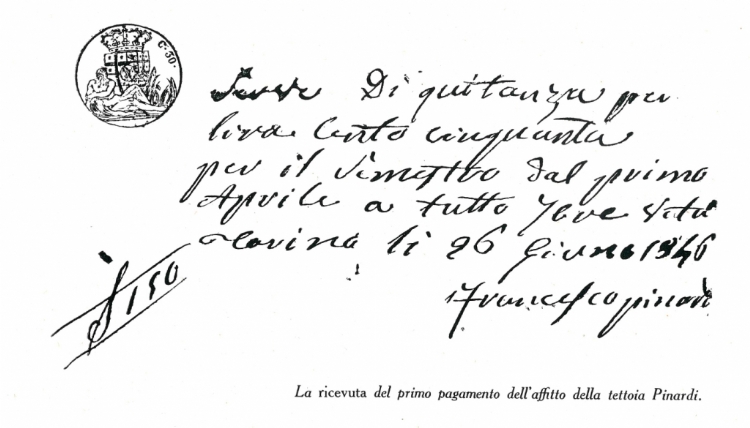 C. 30.
Serve Di quitanza per
lira Cento cinquanta
per il Simestro dal primo
Aprile a tutto
Torino li 26 Giuno 1846
£ 150
Francesco pinardi
La ricevuta del primo pagamento dell'affitto della tettoia Pinardi.